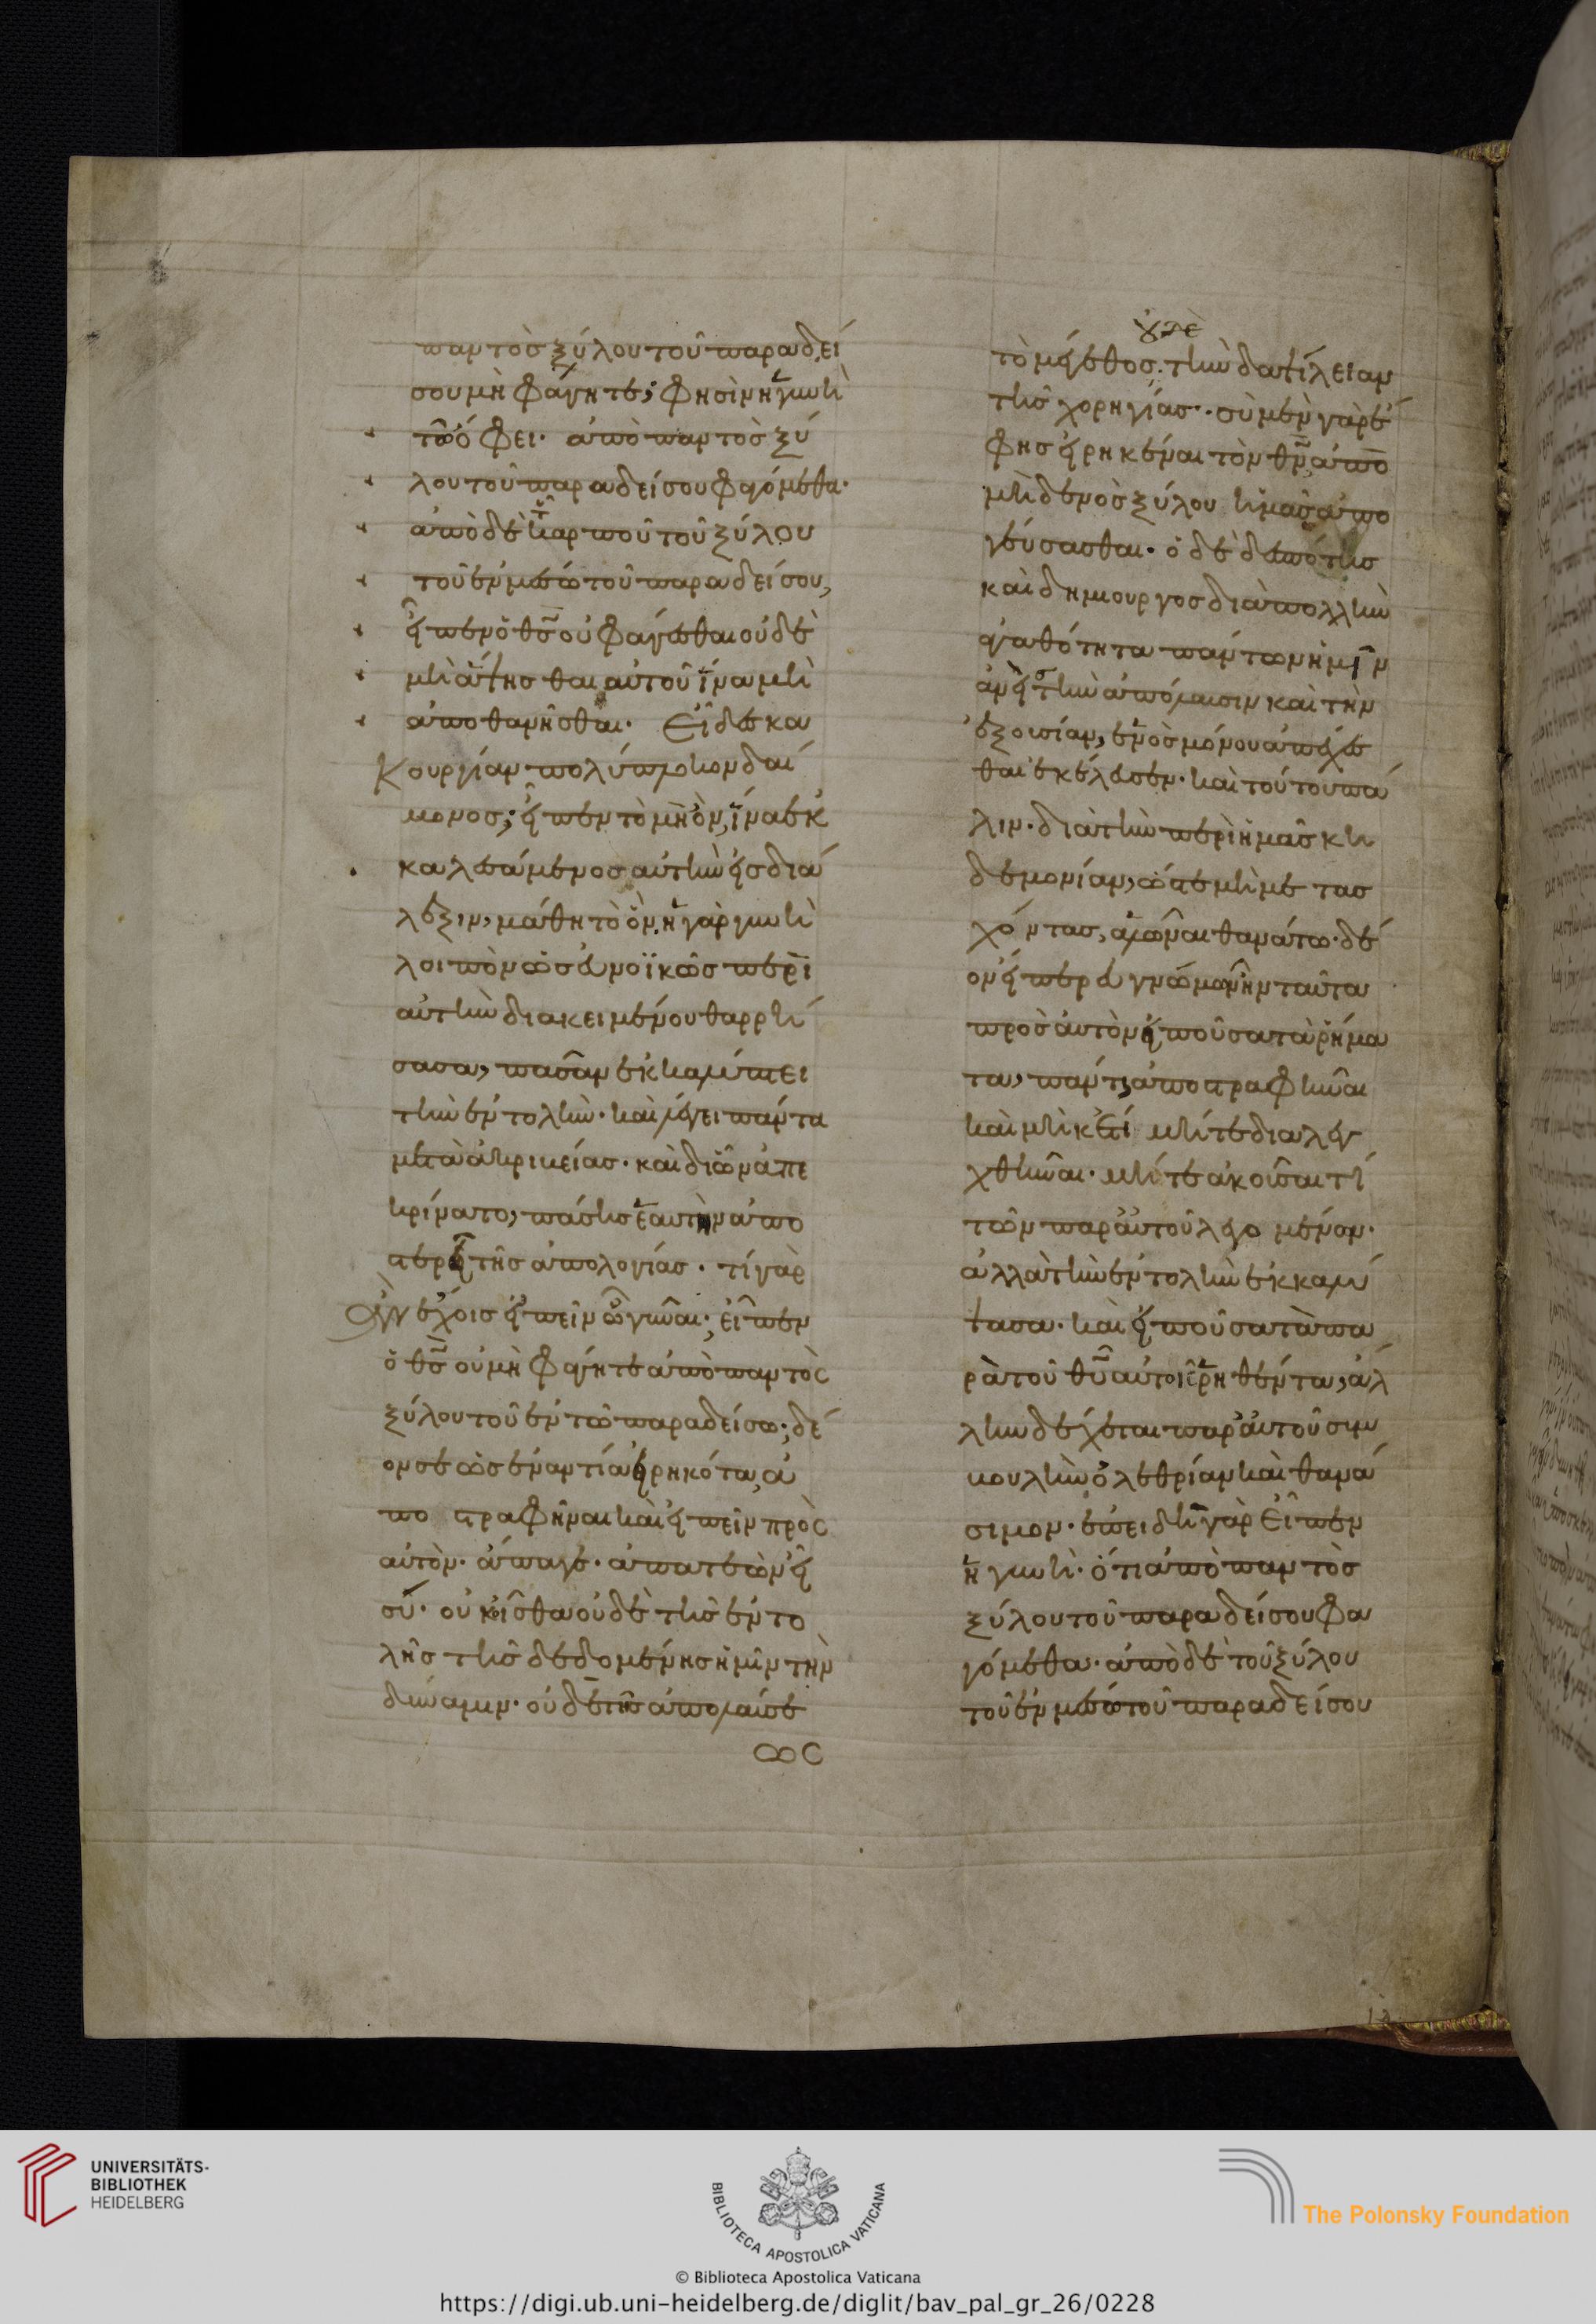 παντὸσ ξύλου τοῦ παραδεί
σου μὴ φάγητε; φησὶν ἡ γυνὴ
τῶ ὄφει· ἀπὸ παντὸσ ξύ
λου τοῦ παραδείσου φαγόμεθα·
ἀπὸ δὲ τοῦ καρποῦ τοῦ ξύλου
τοῦ ἐν μέσω τοῦ παραδείσου,
εἶπεν ὁ θσ οὐ φάγεσθαι οὐδὲ
μὴ ἅψησθαι αὐτοῦ ἵνα μὴ
ἀποθανῆσθαι· Εἶδες κα
κουργίαν πολύπλοκον δαί
μονος; εἶπεν τὸ μὴ ὂν, ἵνα ἐκ
καλεσάμενοσ αὐτὴν εἰσ διά
λεξιν, μάθη τὸ ὄν. ἡ γὰρ γυνὴ
λοιπὸν ὡσ εὐνοϊκῶσ περὶ
αὐτὴν διακειμένου θαρρή
σασα, πᾶσαν ἐκκαλύπτει
τὴν ἐντολὴν· καὶ λέγει πάντα
μετὰ ἀκριβείασ· καὶ δι ὧν ἀπε
κρίνατο, πάσησ ἑαυτὴν ἀπο
στερεῖ τῆσ ἀπολογίασ· τί γὰρ
ἂν ἔχοισ εἰπεῖν ὦ γύναι; εἶπεν
ὁ θσ οὐ μὴ φάγητε ἀπὸ παντὸσ
ξύλου τοῦ ἐν τῶ παραδείσω; δέ
ον σε ὡσ ἐναντία εἰρηκότα, ἀ
ποστραφῆναι καὶ εἰπεῖν πρὸσ
αὐτὸν· ἄπαγε· ἀπατεὼν εἶ
σύ· οὐκ οἶσθα οὐδὲ τῆσ ἐντο
λῆσ τῆσ δεδομένησ ἡμῖν τὴν
δύναμιν· οὐδὲ τῆσ ἀπολαύσε
ωσ
τὸ μέγεθοσ. τὴν δαψίλειαν
τῆσ χορηγίασ· σὺ μὲν γὰρ ἔ
φησ εἰρηκέναι τὸν θν ἀπὸ
μηδενὸσ ξύλου ἡμᾶσ ἀπο
γεύσασθαι· ὁ δὲ δεσπότησ
καὶ δημιουργοσ διὰ πολλὴν
ἀγαθότητα πάντων ἡμῖν
ἀνεὶσ τὴν ἀπόλαυσιν καὶ τὴν
ἐξουσίαν, ἑνὸσ μόνου ἀπέχεσ
θαι ἐκέλευσεν· καὶ τούτου πά
λιν· διὰ τὴν περὶ ἡμᾶσ κη
δεμονίαν, ὥστε μὴ μετασ
χόντασ, ἁλῶναι θανάτω· δέ
ον εἴπερ εὐγνώμων ἦν ταῦτα
πρὸσ αὐτὸν εἰποῦσα τὰ ῥήμα
τα, πάντη ἀποστραφῆναι
καὶ μὴκέτι μήτε διαλεγ
χθῆναι· μήτε ἀκοῦσαί τι
τῶν παρ αὐτοῦ λεγομένων·
ἀλλὰ τὴν ἐντολὴν ἐκκαλύ
ψασα· καὶ εἰποῦσα τὰ πα
ρὰ τοῦ θυ αὐτοῖσ ῥηθέντα, ἄλ
λην δέχεται παρ αὐτοῦ συμ
βουλὴν ὀλεθρίαν καὶ θανά
σιμον· ἐπειδὴ γὰρ εἶπεν
ἡ γυνὴ· ὅτι ἀπὸ παντὸσ
ξύλου τοῦ παραδείσου φα
γόμεθα· ἀπὸ δὲ τοῦ ξύλου
τοῦ ἐν μέσω τοῦ παραδείσου
UNIVERSITÄTS-
BIBLIOTHEK
HEIDELBERG
BIBLIOTECA APOSTOLICA VATICANA
© Biblioteca Apostolica Vaticana
The Polonsky Foundation
https://digi.ub.uni-heidelberg.de/diglit/bav_pal_gr_26/0228